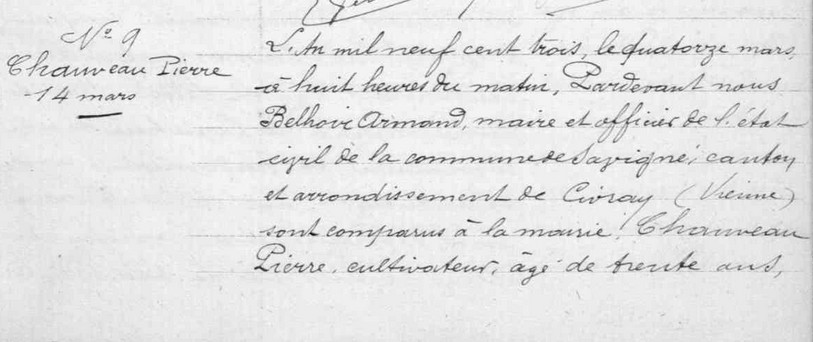 N° 9
Chauveau Pierre
14 mars
L'An mil neuf cent trois, le quatorze mars,
à huit heures du matin, Pardevant nous
Belhoir Armand, maire et officier de l'état
civil de la commune de Savigné, canton
et arrondissement de Civray (Vienne)
sont comparus à la mairie, Chauveau
Pierre, cultivateur, âgé de trente ans,